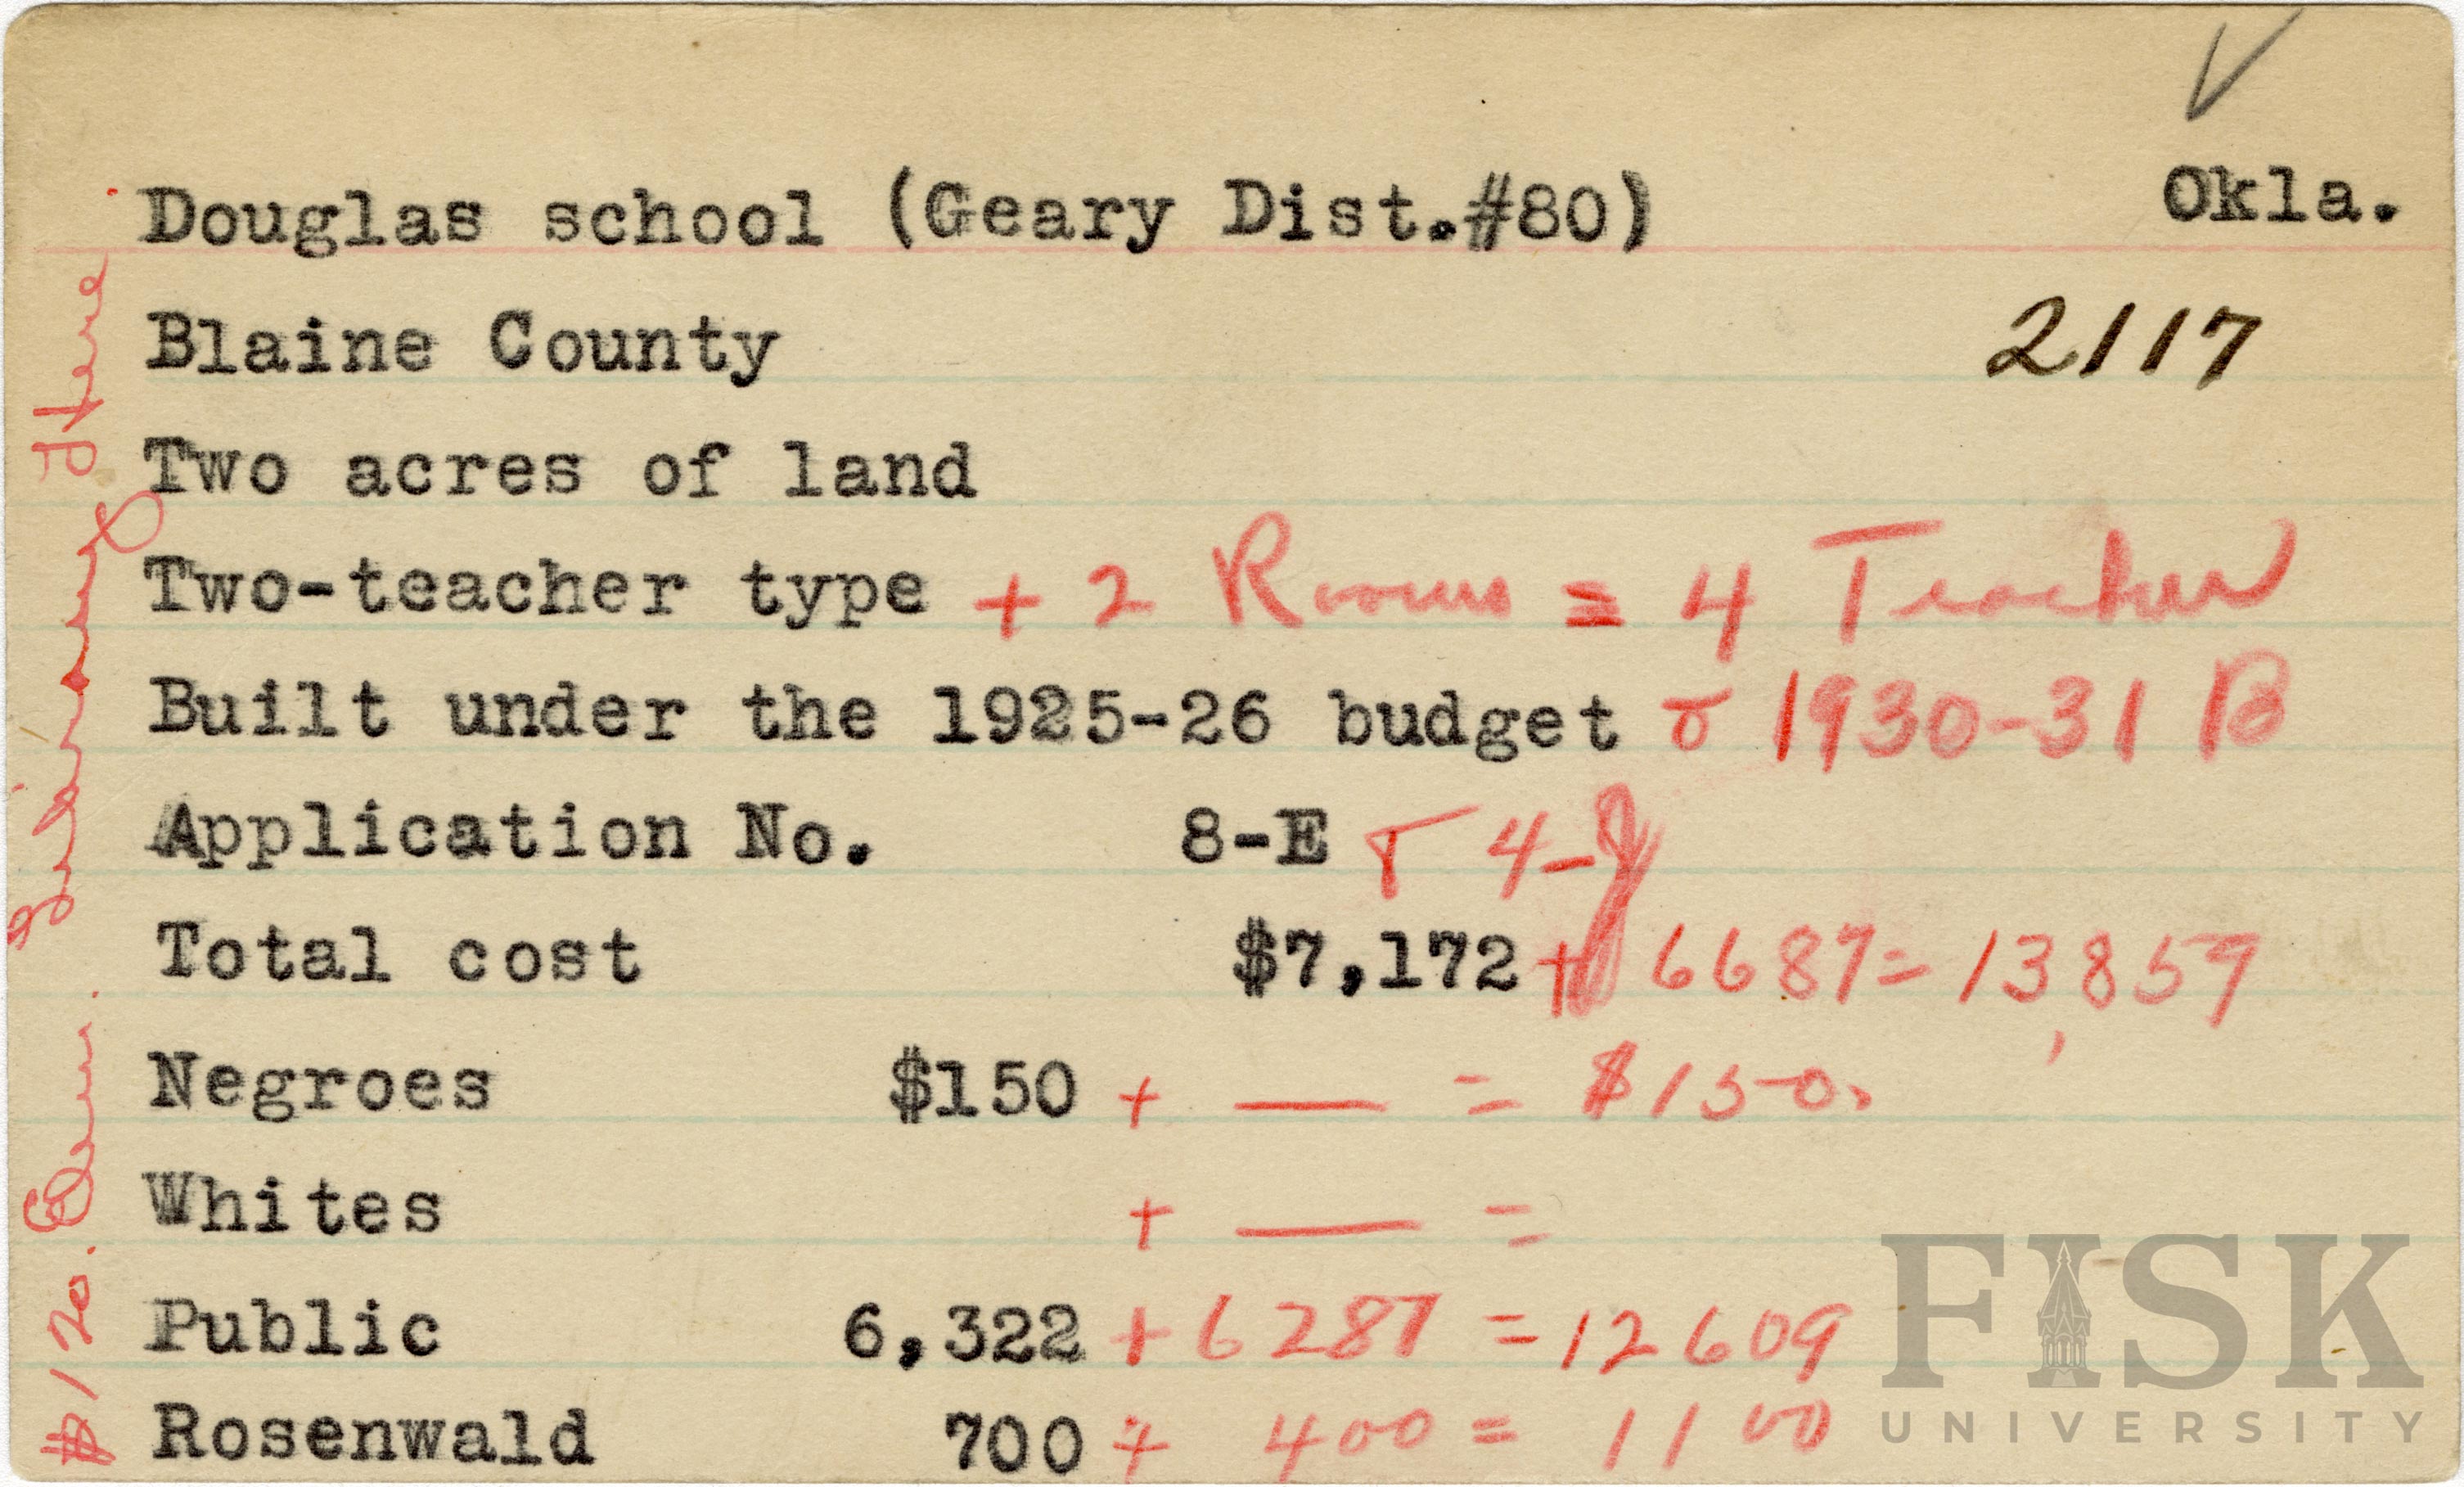 Okla.
Douglas school (Geary Dist.#80)
2117
Blaine County
Two acres of land
Two-teacher type + 2 Rooms = 4 Teacher
Built under the 1925-26 budget & 1930-31 B
Application No. 8-E & 4-J
Total cost $7,172 + 6687 = 13,859
Negroes $150 + — = $150.
Whites + — =
Public 6,322 + 6287 = 12609
Rosenwald 700 + 400 = 1100
$120. Elem. Library Here
FISK
UNIVERSITY